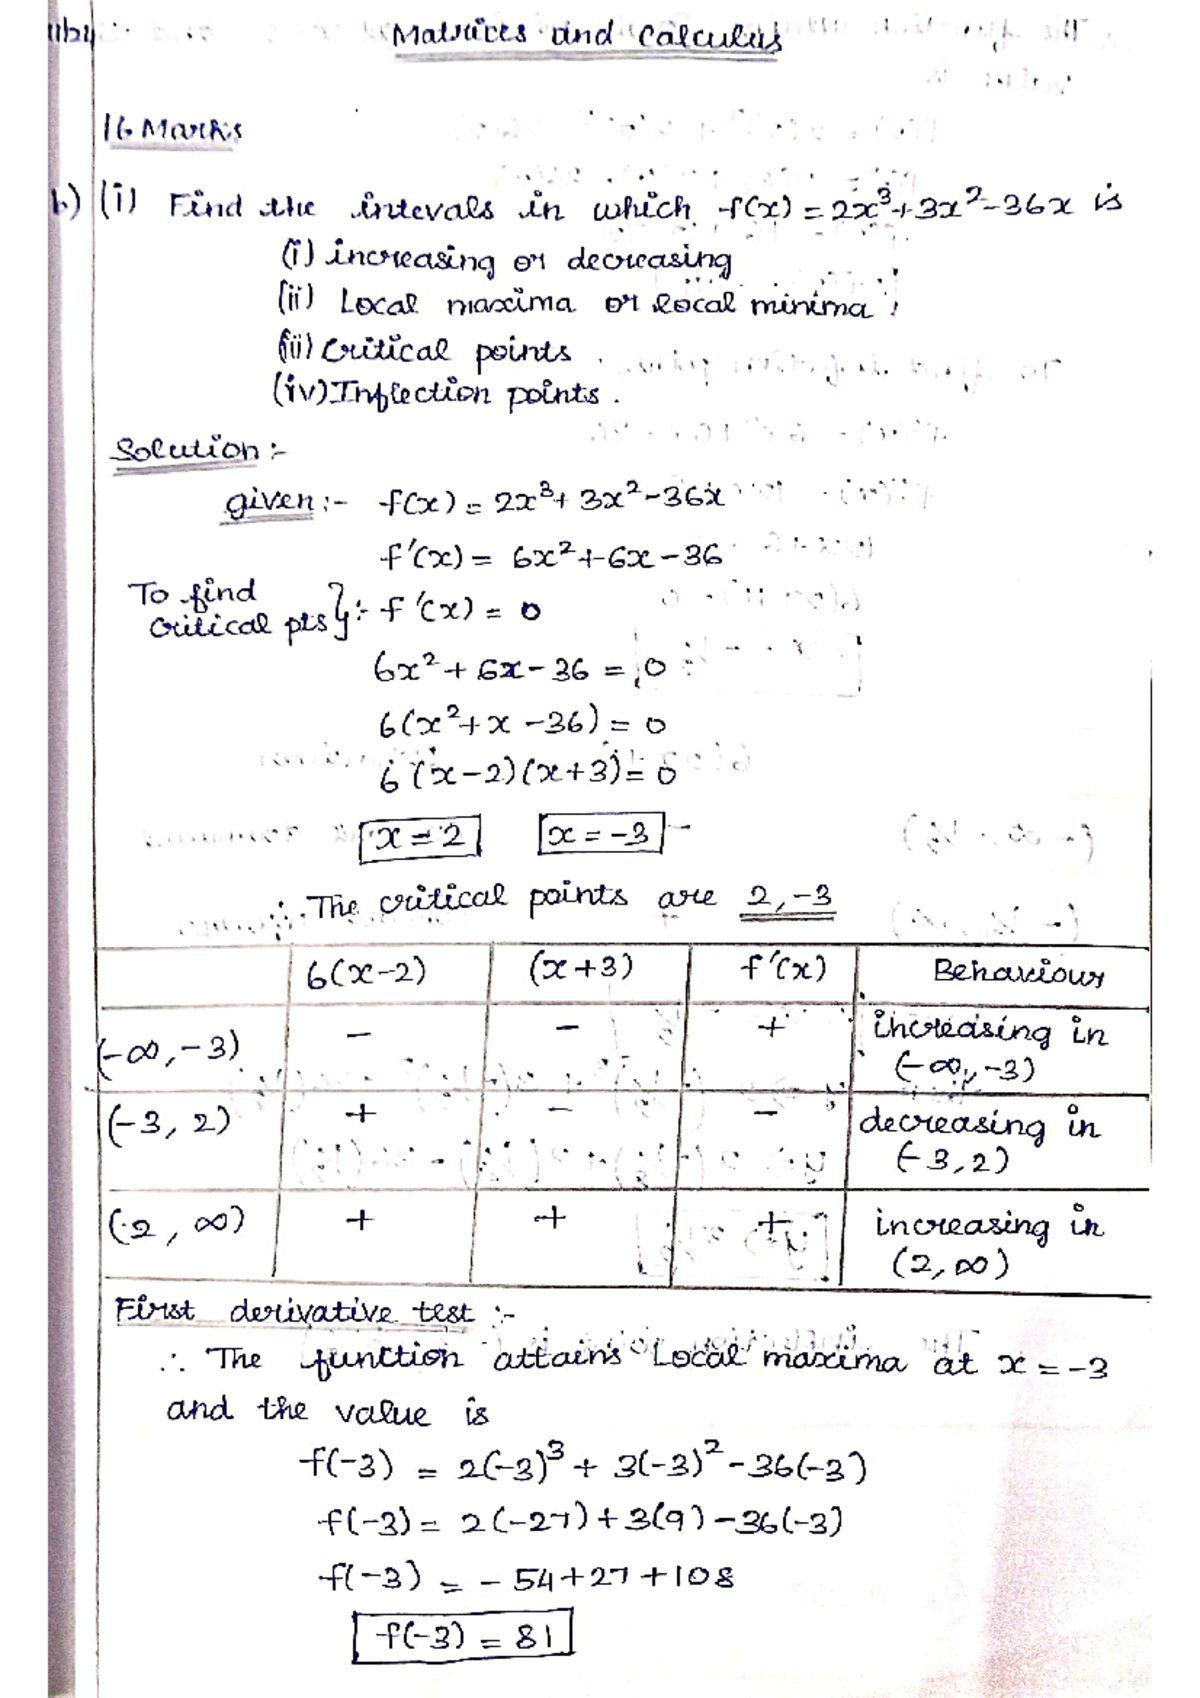 Matrices and Calculus
16 Marks
b) (i) Find the intevals in which f(x) = 2x³+3x²-36x is
(i) increasing or decreasing
(ii) Local maxima or local minima
(iii) Critical points.
(iv) Inflection points.
Solution :-
given :- f(x) = 2x³+ 3x²-36x
f'(x) = 6x²+6x-36
To find
Critical pts} :- f'(x) = 0
6x²+6x-36 = 0
6(x²+x-36) = 0
6(x-2)(x+3) = 0
x = 2 x = -3
∴ The critical points are 2,-3
6(x-2) (x+3) f'(x) Behaviour
(-∞,-3) - - + increasing in
(-∞,-3)
(-3, 2) + - - decreasing in
(-3,2)
(2, ∞) + + + increasing in
(2,∞)
First derivative test :-
∴ The function attains Local maxima at x = -3
and the value is
f(-3) = 2(-3)³+ 3(-3)²-36(-3)
f(-3) = 2(-27)+3(9)-36(-3)
f(-3) = -54+27+108
f(-3) = 81